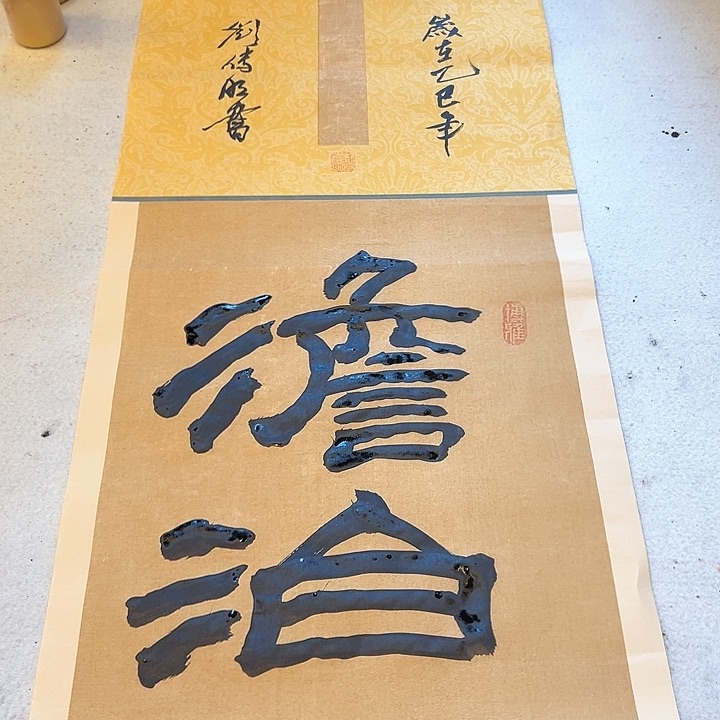 歲在乙巳年
劉書
澹泊